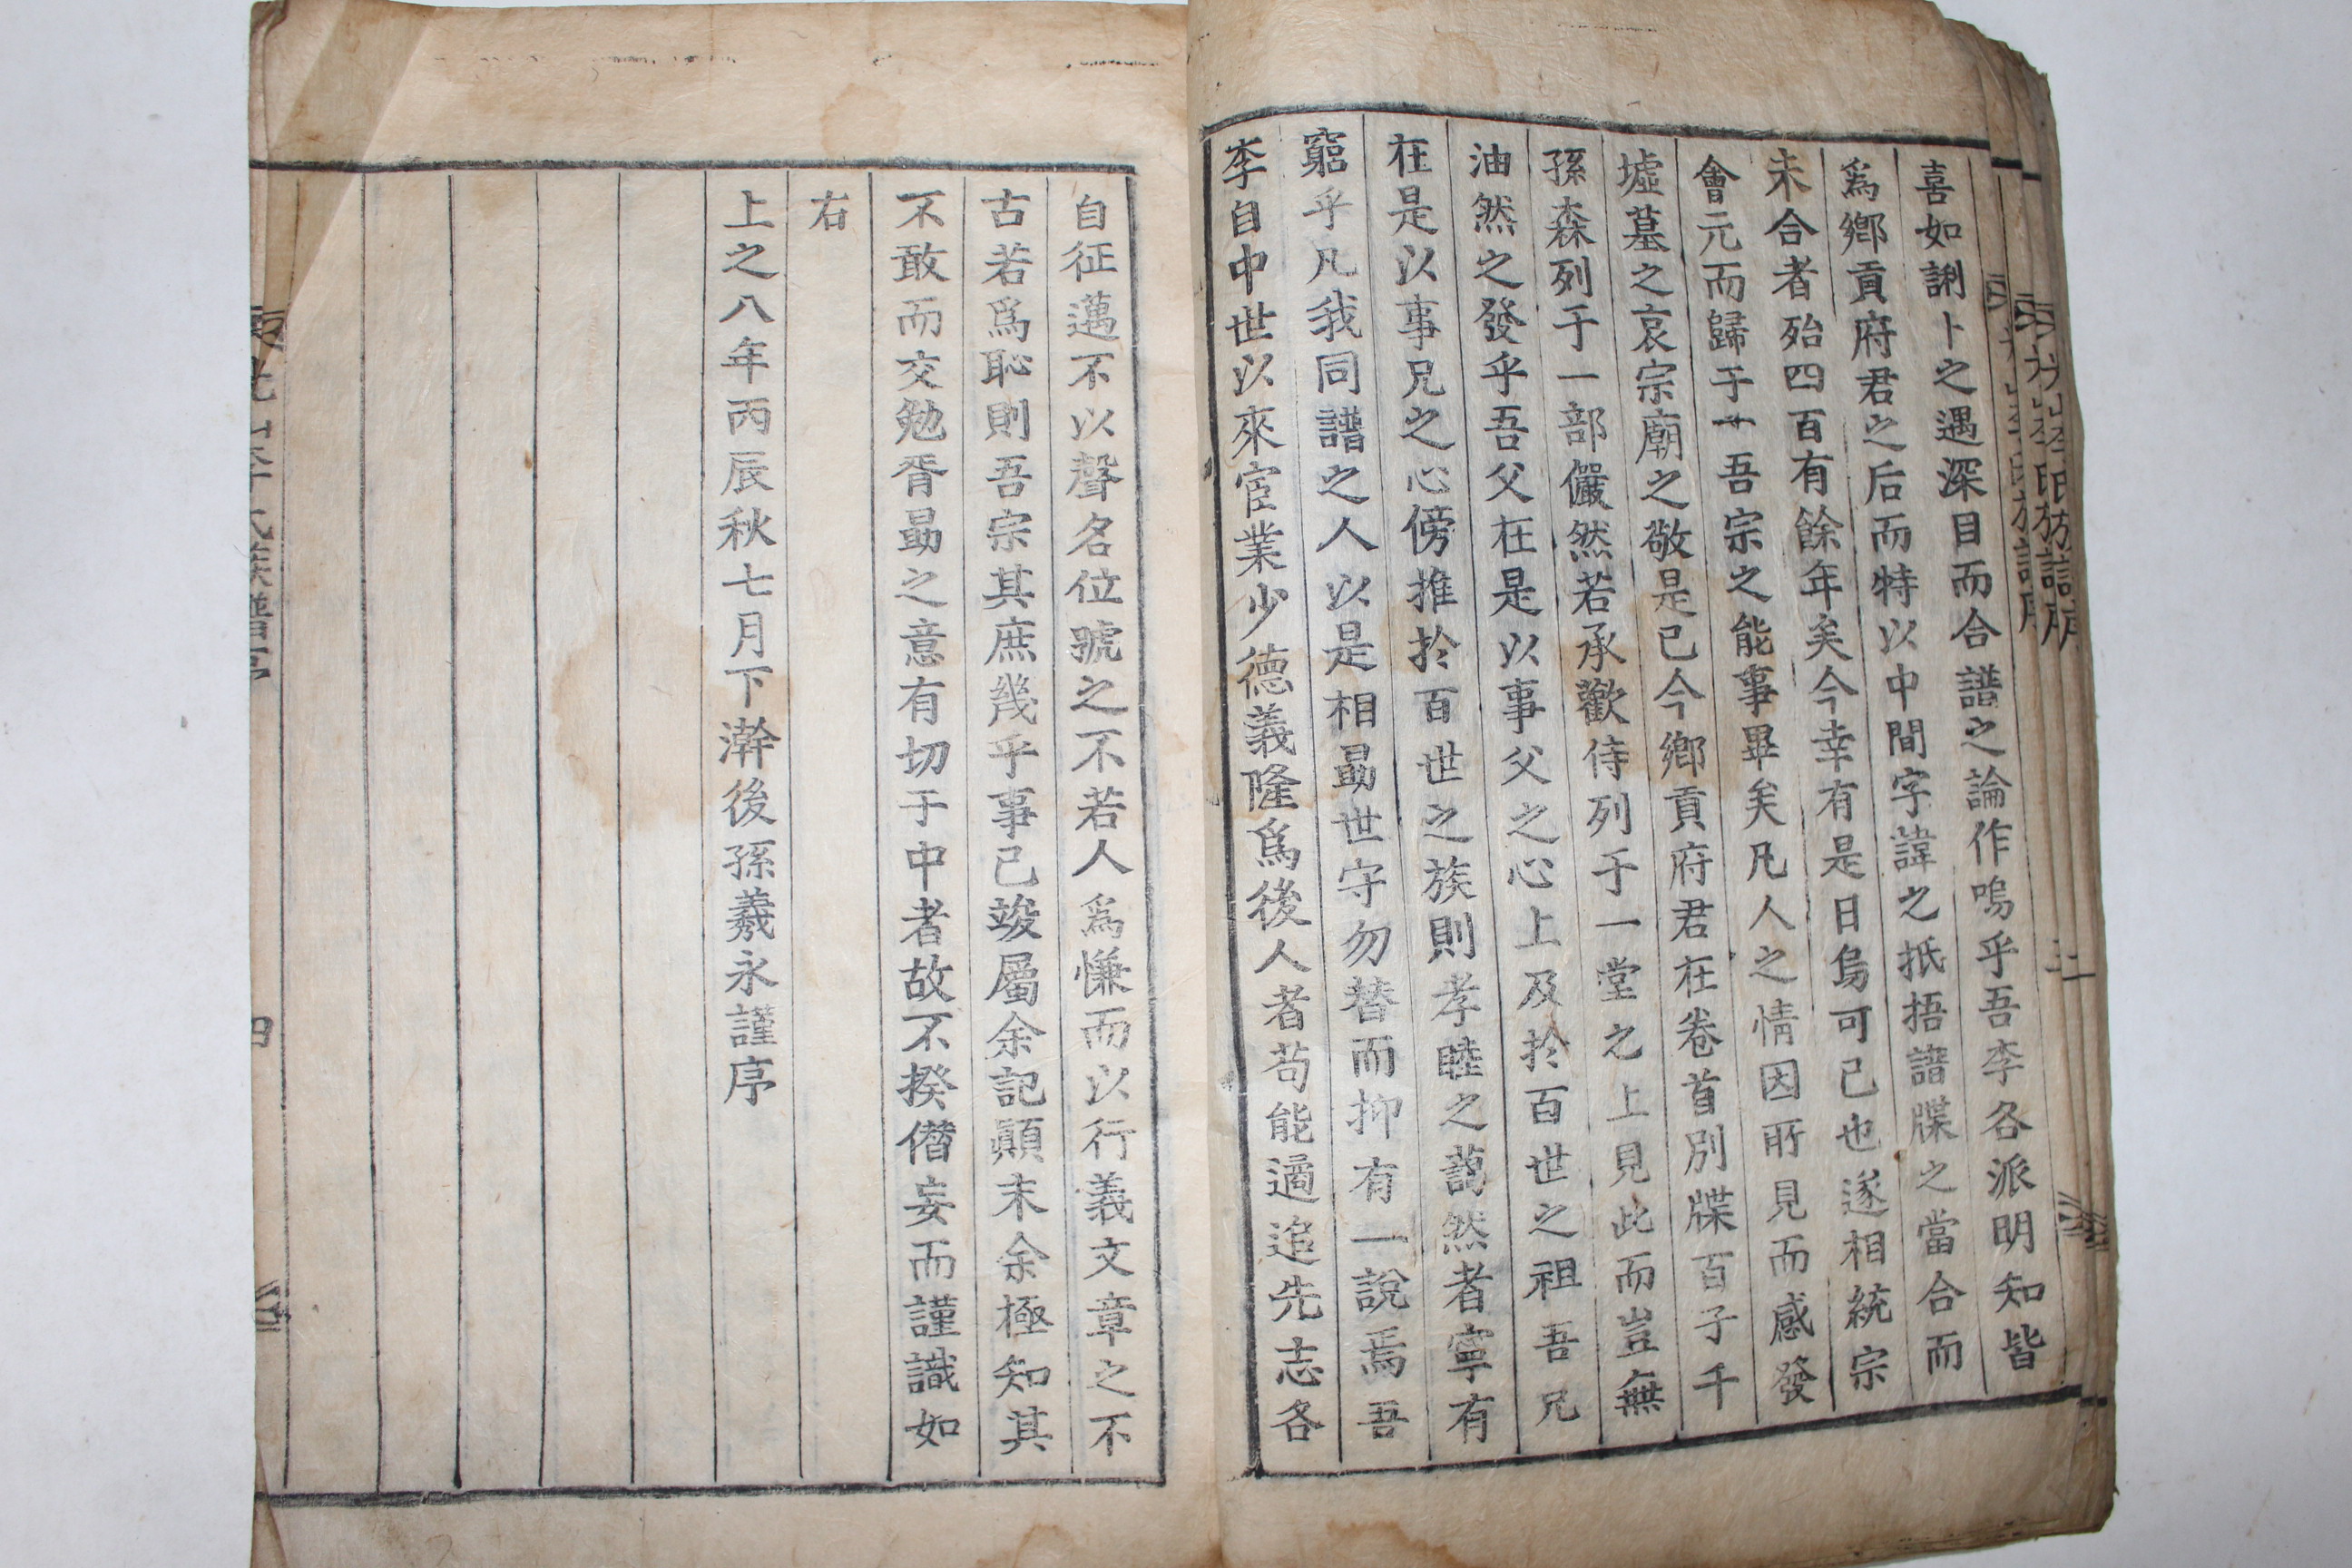 喜如謝卜之遇深目而合譜之論作嗚乎吾李各派明知皆
爲鄕貢府君之后而特以中間字諱之抵捂譜牒之當合而
未合者殆四百有餘年矣今幸有是日烏可已也遂相統宗
會元而歸于一吾宗之能事畢矣凡人之情因所見而感發
墟墓之哀宗廟之敬是已今鄕貢府君在卷首別牒百子千
孫森列于一部儼然若承歡侍列于一堂之上見此而豈無
油然之發乎吾父在是以事父之心上及於百世之祖吾兄
在是以事兄之心傍推於百世之族則孝睦之藹然者寧有
窮乎凡我同譜之人以是相勗世守勿替而抑有一說焉吾
李自中世以來宦業少德義隆爲後人者苟能遹追先志各
自征邁不以聲名位號之不若人爲慊而以行義文章之不
古若爲恥則吾宗其庶幾乎事已竣屬余記顚末余極知其
不敢而交勉胥勗之意有切于中者故不揆僭妄而謹識如
右
上之八年丙辰秋七月下澣後孫羲永謹序
李氏族譜序
四